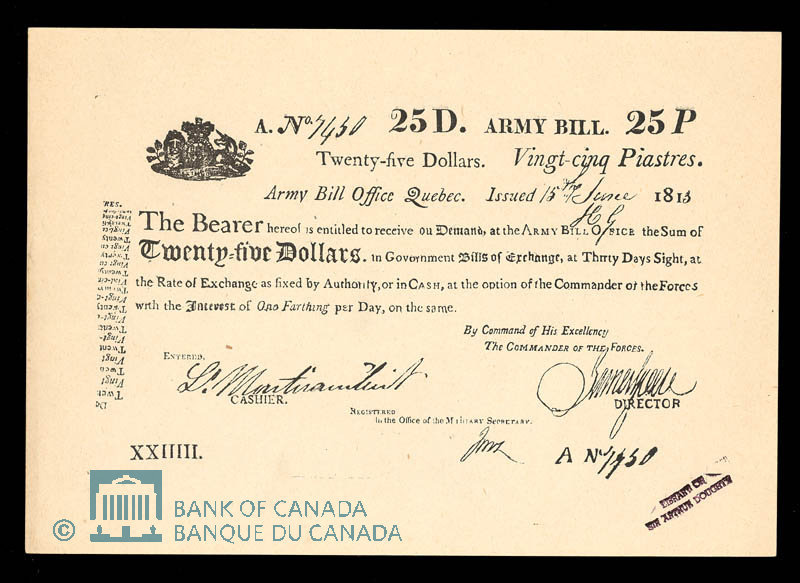 A. No. 7450 25 D. ARMY BILL. 25 P
Twenty-five Dollars. Vingt-cinq Piastres.
Army Bill Office Quebec. Issued 15th June 1813
HG
The Bearer hereof is entitled to receive on Demand, at the ARMY BILL OFFICE the Sum of
Twenty-five Dollars. in Government Bills of Exchange, at Thirty Days Sight, at
the Rate of Exchange as fixed by Authority, or in CASH, at the option of the Commander of the Forces
with the Interest of One Farthing per Day, on the same.
By Command of His Excellency
The COMMANDER OF THE FORCES.
ENTERED.
CASHIER.
DIRECTOR
REGISTERED
in the Office of the MILITARY SECRETARY.
XXIIIII.
A No 7450
LIBRARY OF
SIR ARTHUR DOUGHTY
© BANK OF CANADA
BANQUE DU CANADA